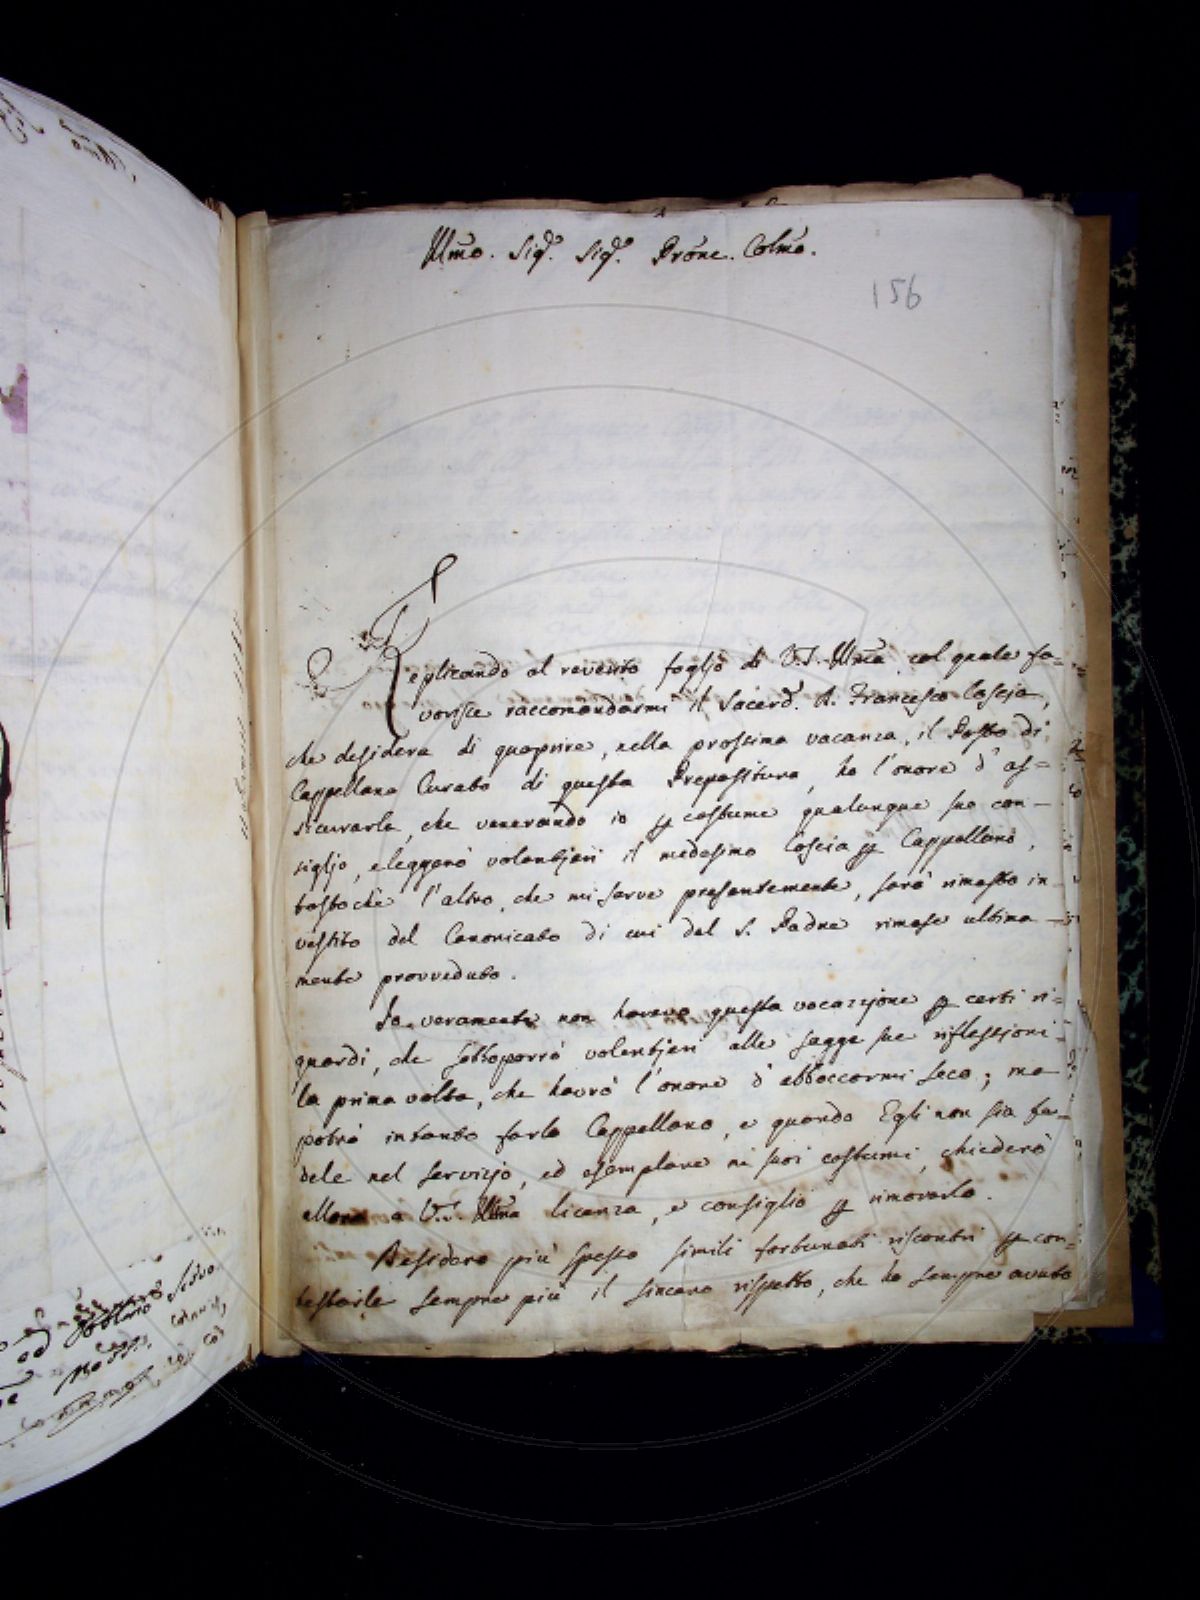 Illmo. Sigr. Sigr. Prone. Colmo.
156
Replicando al reverito foglio di V.S. Illma col quale fa=
vorisce raccomandarmi il Sacerd. D. Francesco Coscia,
che desidera di quaprire, nella prossima vacanza, il Posto di
Cappellano Curato di questa Prepositura, ho l'onore d'as=
sicurarla, che venerando io p costume qualunque suo con-
siglio, eleggerò volentieri il medesimo Coscia p Cappellano,
tostochè l'altro, che mi serve presentemente, sarà rimasto in-
vestito del Canonicato di cui dal S. Padre rimase ultima-
mente provveduto.
Io veramente non havevo questa vocazione p certi ri=
guardi, che sottoporrò volentieri alle sagge sue riflessioni
la prima volta, che havrò l'onore d'abboccarmi seco; ma
potrò intanto farlo Cappellano, e quando Egli non sia fe=
dele nel servizio, ed esemplare ne suoi costumi, chiederò
allora a V.S. Illma licenza, e consiglio p rimoverlo.
Desidero più spesso simili fortunati riscontri p con=
testarle sempre più il sincero rispetto, che ho sempre avuto